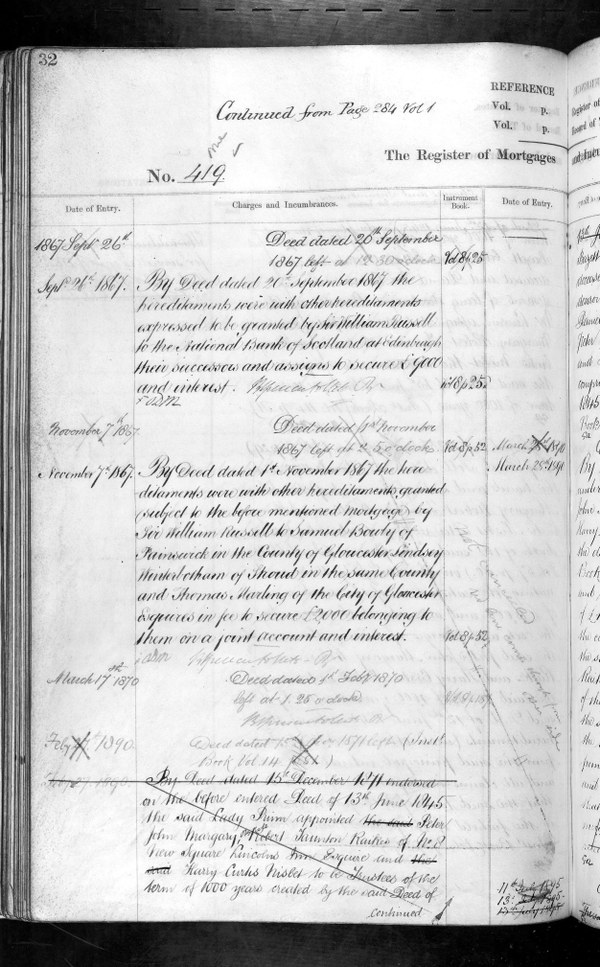 32
REFERENCE
Vol. p.
Vol. p.
Continued from Page 284 Vol 1
The Register of Mortgages
No. 419
Date of Entry.
Charges and Incumbrances.
Instrument Book.
Date of Entry.
1867 Septr 26th
Deed dated 20th September
1867 left at o'clock
Vol 8 p 25
Septr 26th 1867.
By Deed dated 20th September 1867 the
hereditaments were with other hereditaments
expressed to be granted by Sir William Russell
to the National Bank of Scotland at Edinburgh
their successors and assigns to secure £9000
and interest.
Vol 8 p 25
November 7th 1867
Deed dated 1st November
1867 left at 2.5 o'clock
Vol 8 p 52
November 7th 1867.
By Deed dated 1st November 1867 the here
ditaments were with other hereditaments granted
(subject to the before mentioned Mortgage) by
Sir William Russell to Samuel Bowly of
Painswick in the County of Gloucester Lindsey
Winterbotham of Stroud in the same County
and Thomas Marling of the City of Gloucester
Esquires in fee to secure £2000 belonging to
them on a joint account and interest.
Vol 8 p 52
March 28th 1890
March 17th 1870
Deed dated 1st Feby 1870
left at 1.25 o'clock
Feby 27 1890.
Deed dated 15 1871 left (Inst
Book Vol 14 )
Feby 27 1890.
By Deed dated 15th December 1871 endorsed
on the before entered Deed of 13th June 1845
the said Lady Prim appointed the said Peter
John Margary, Robert Taunton Raikes of No 8
New Square Lincolns Inn Esquire and the
said Harry Curtis Nisbet to be Trustees of the
term of 1000 years created by the said Deed of
continued
11th July 1845